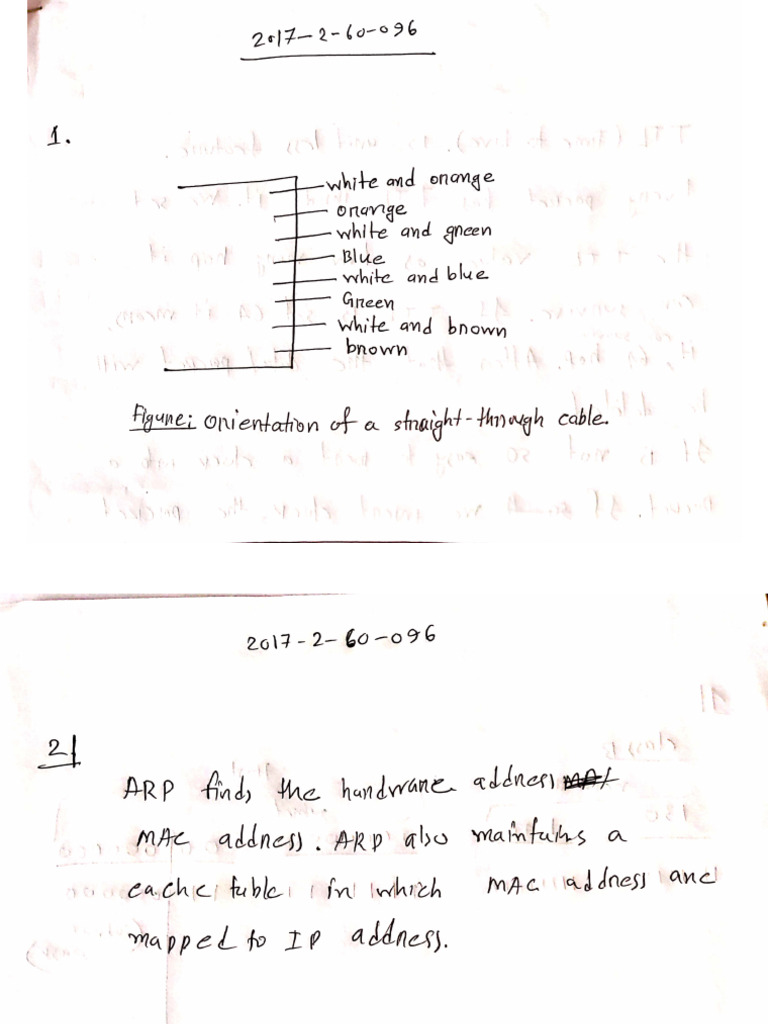 2017-2-60-096
1.
white and orange
orange
white and green
Blue
white and blue
Green
white and brown
brown
Figure: Orientation of a straight-through cable.
2017-2-60-096
2|
ARP finds the hardware address
MAC address. ARP also maintains a
cache table in which MAC address are
mapped to IP address.